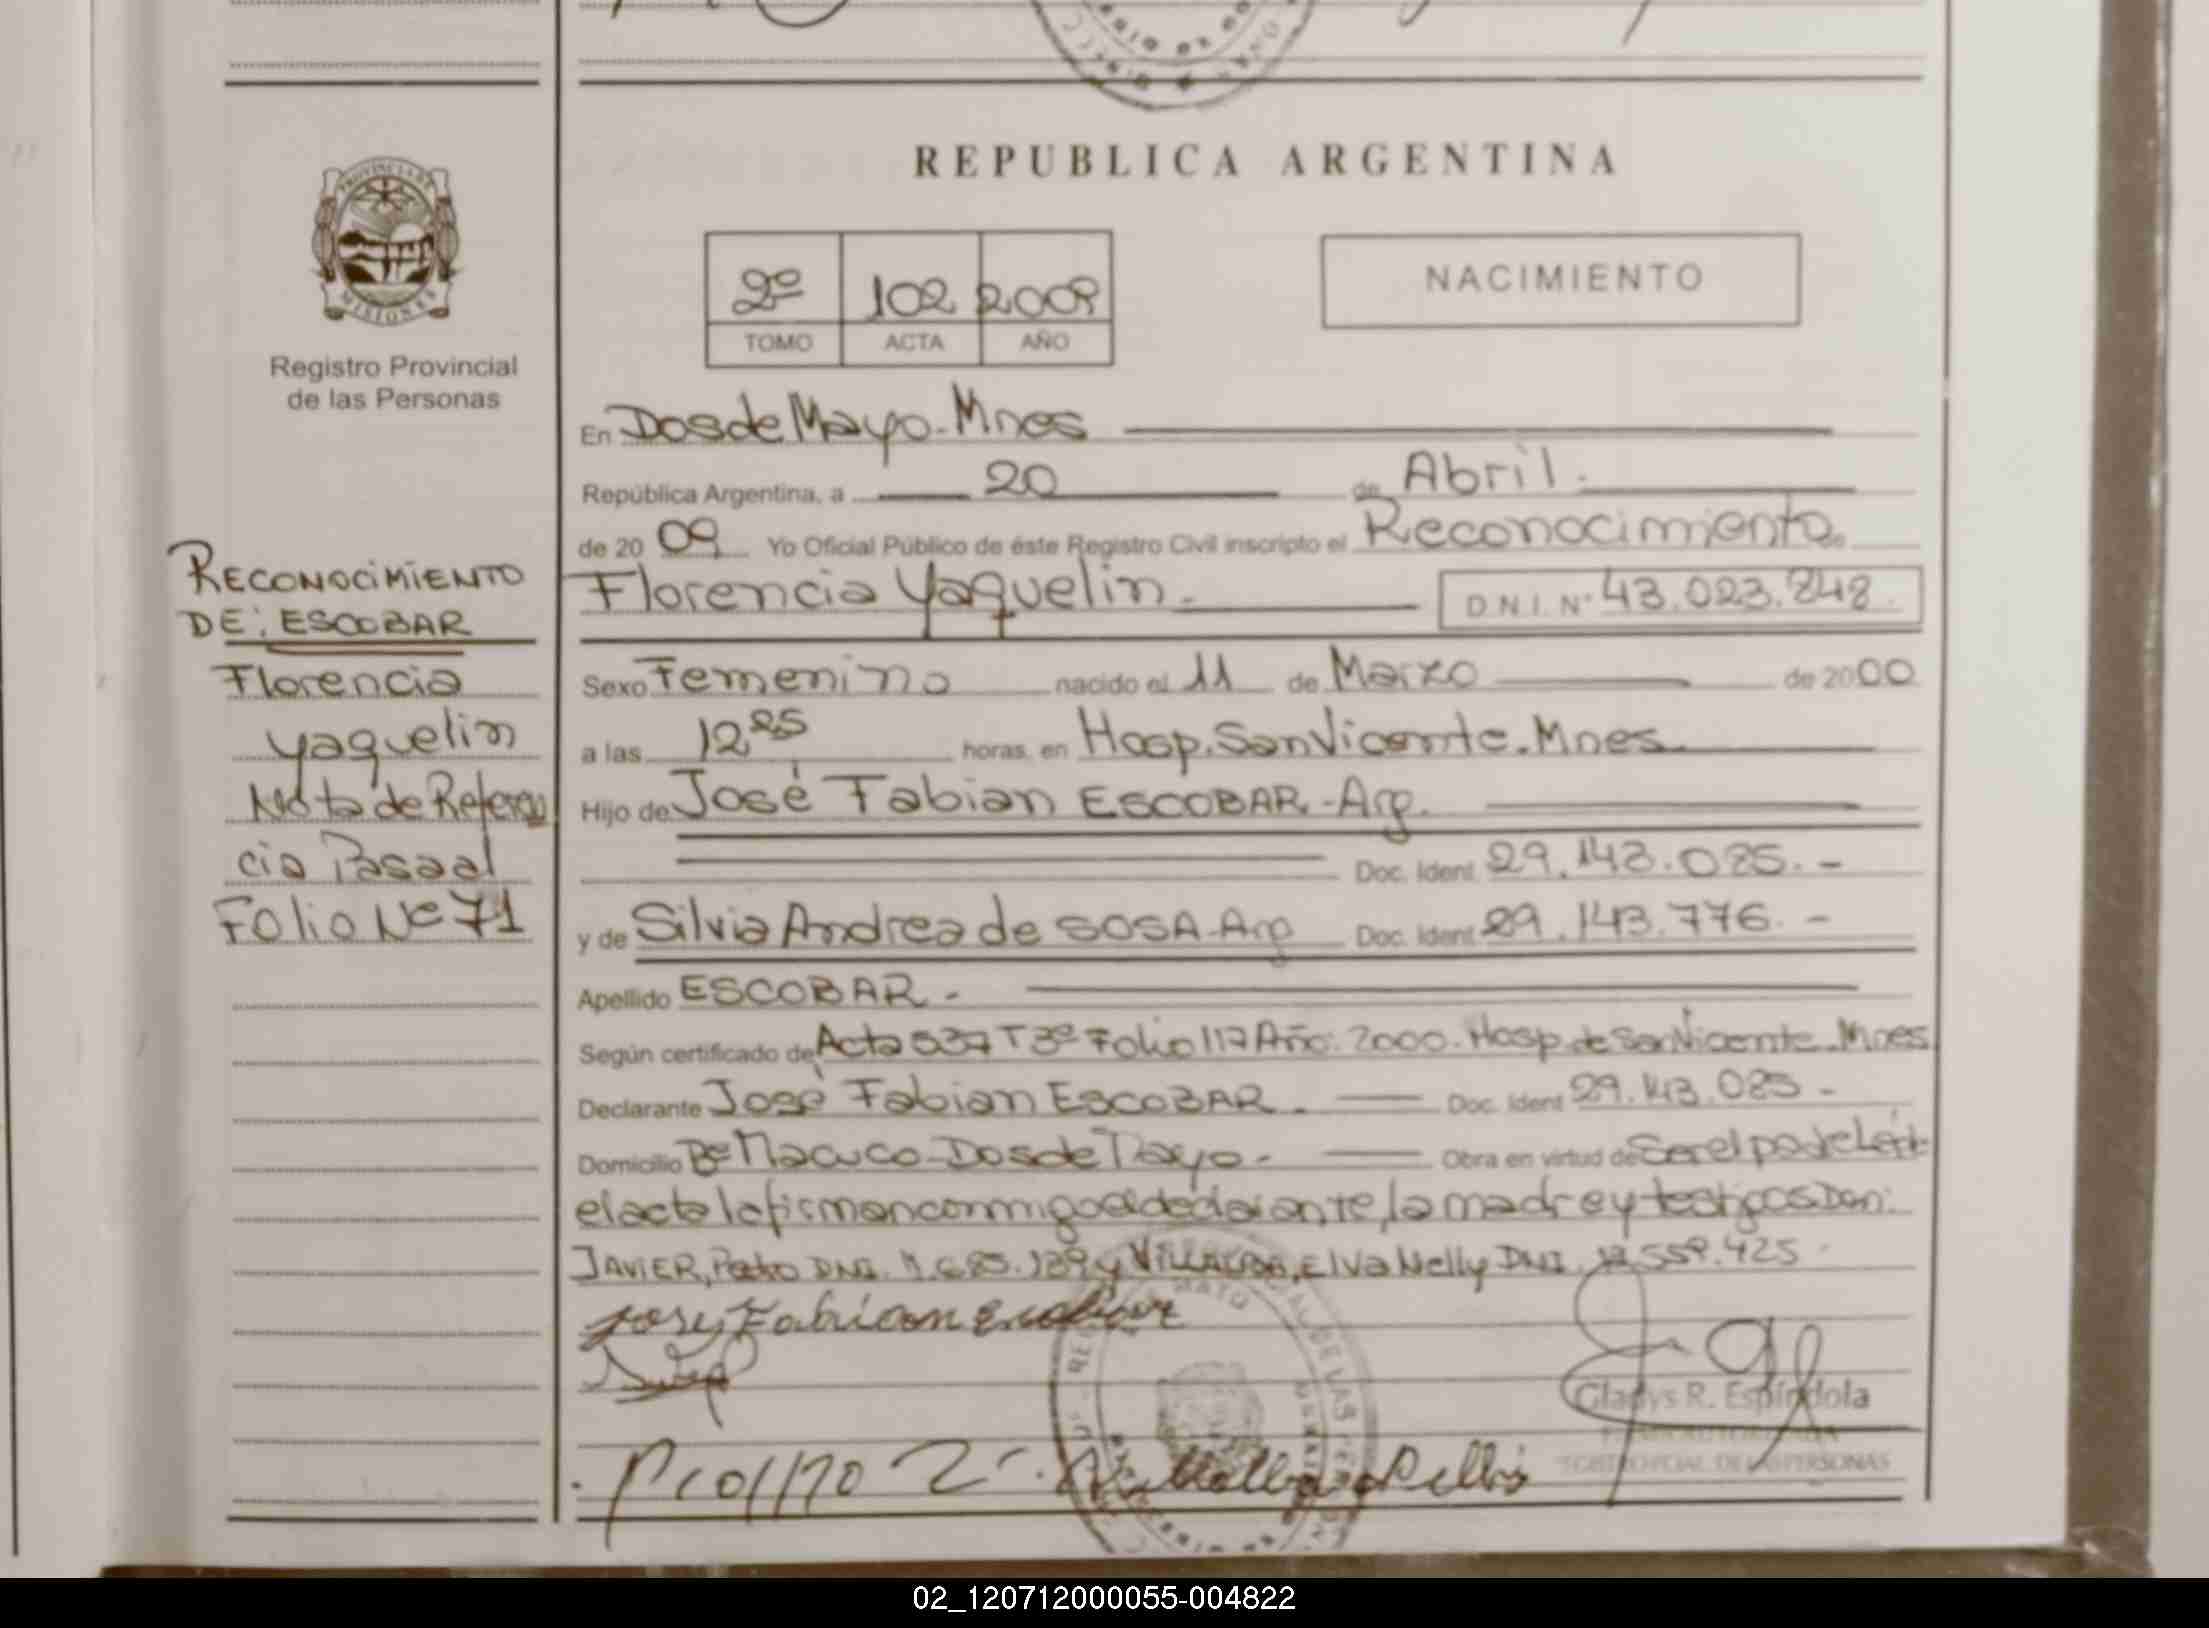 REPUBLICA ARGENTINA
PROVINCIA DE
MISIONES
Registro Provincial
de las Personas
2º 102 2009
TOMO ACTA AÑO
NACIMIENTO
En Dos de Mayo - Mnes
República Argentina, a 20 de Abril.
de 2009 Yo Oficial Público de éste Registro Civil inscripto el Reconocimiento
Florencia Yaquelin. D.N.I. Nº 43.023.848.
RECONOCIMIENTO
DE: ESCOBAR
Florencia
yaquelin
Nota de Referen
cia
Folio Nº 71
Sexo Femenino nacido el 11 de Marzo de 2000
a las 12 25 horas, en Hosp. San Vicente. Mnes.
Hijo de José Fabian ESCOBAR - Arg.
Doc. Ident. 29.143.085. -
y de Silvia Andrea de SOSA - Arg Doc. Ident. 29.143.776. -
Apellido ESCOBAR -
Según certificado de Acta 537 Tº 3º Folio 117 Año: 2000. Hosp. de San Vicente. Mnes
Declarante José Fabian ESCOBAR. Doc. Ident. 29.143.085 -
Domicilio Bº Macuco - Dos de Mayo - Obra en virtud de Ser el padre Leída
el acta la firman conmigo el declarante, la madre y testigos Don:
JAVIER, Pedro DNI. y VILLALBA, Elva Nelly DNI. .559.425
Jose Fabian Escobar
Gladys R. Espíndola
FIRMA AUTORIZADA
REGISTRO PCIAL. DE LAS PERSONAS
02_120712000055-004822